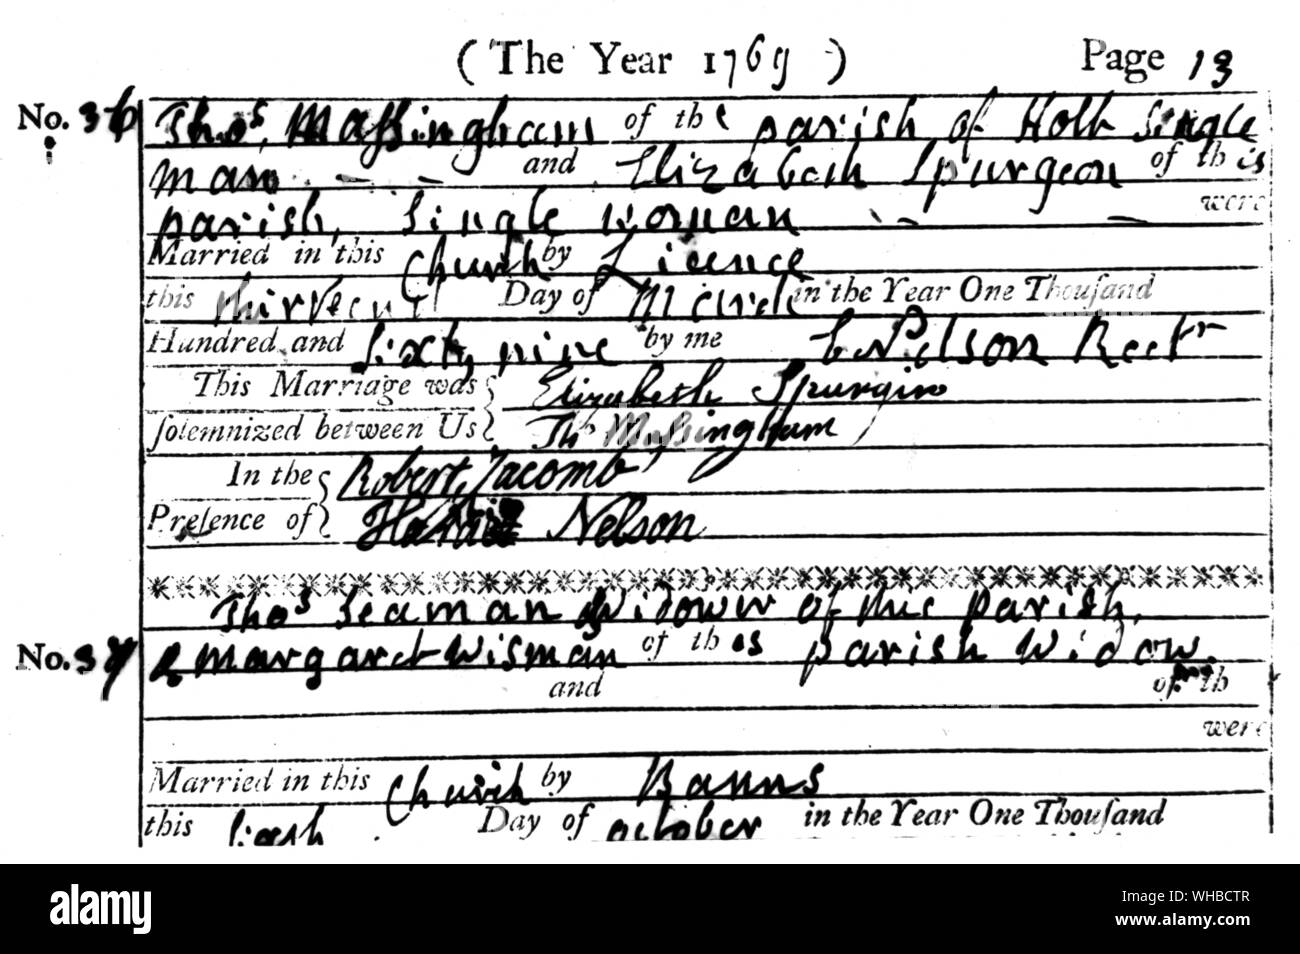 (The Year 1769) Page 13
No. 36 Thos. Massingham of the parish of Holt Single
man - - and Elizabeth Spurgeon of this
parish, Single woman - - were
Married in this Church by Licence
this thirteenth Day of March in the Year One Thousand
Hundred and Sixty nine by me E Nelson Rectr
This Marriage was Elizabeth Spurgin
solemnized between Us Ths Massingham
In the Robert Jacomb
Presence of Nelson
Thos Seaman Widower of this parish,
No. 37 & Margaret Wisman of this parish Widow.
and of th
were
Married in this Church by Banns
this Day of october in the Year One Thousand
alamy
alamy
Image ID: WHBCTR
www.alamy.com